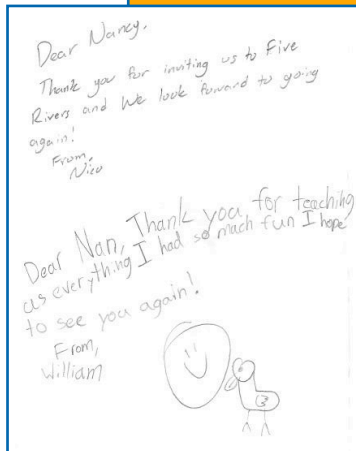 Dear Nancy,
Thank you for inviting us to Five
Rivers and We look forward to going
again!
From,
Nico
Dear Nan, Thank you for teaching
us everything I had so much fun I hope
to see you again!
From,
William